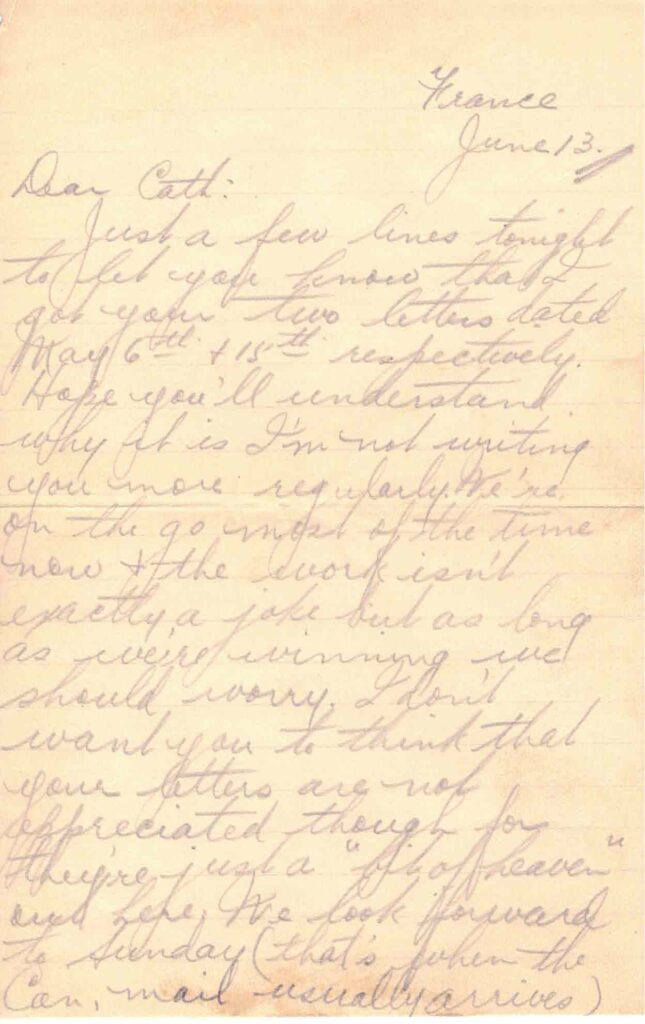 France
June 13.
Dear Cath:
Just a few lines tonight
to let you know that I
got your two letters dated
May 6th + 15th respectively.
Hope you'll understand
why it is I'm not writing
you more regularly. We're
on the go most of the time
now + the work isn't
exactly a joke but as long
as we're winning we
should worry. I don't
want you to think that
your letters are not
appreciated though for
they're just a "bit of heaven"
out here. We look forward
to Sunday (that's when the
Can. mail usually arrives)